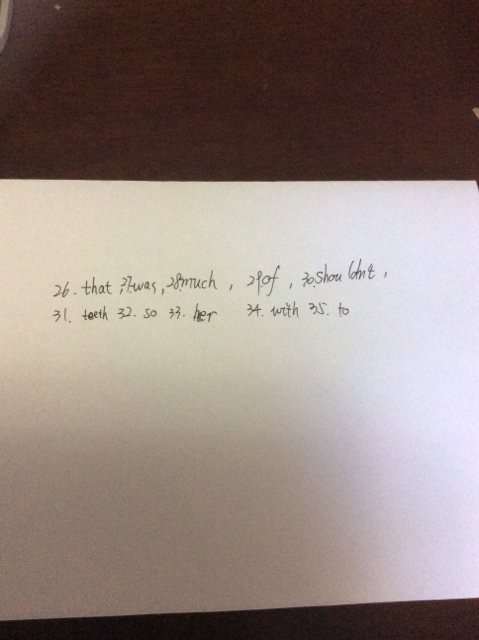 26. that, 27was, 28much, 29of, 30.shouldn't,
31. teeth 32. so 33. her 34. with 35. to